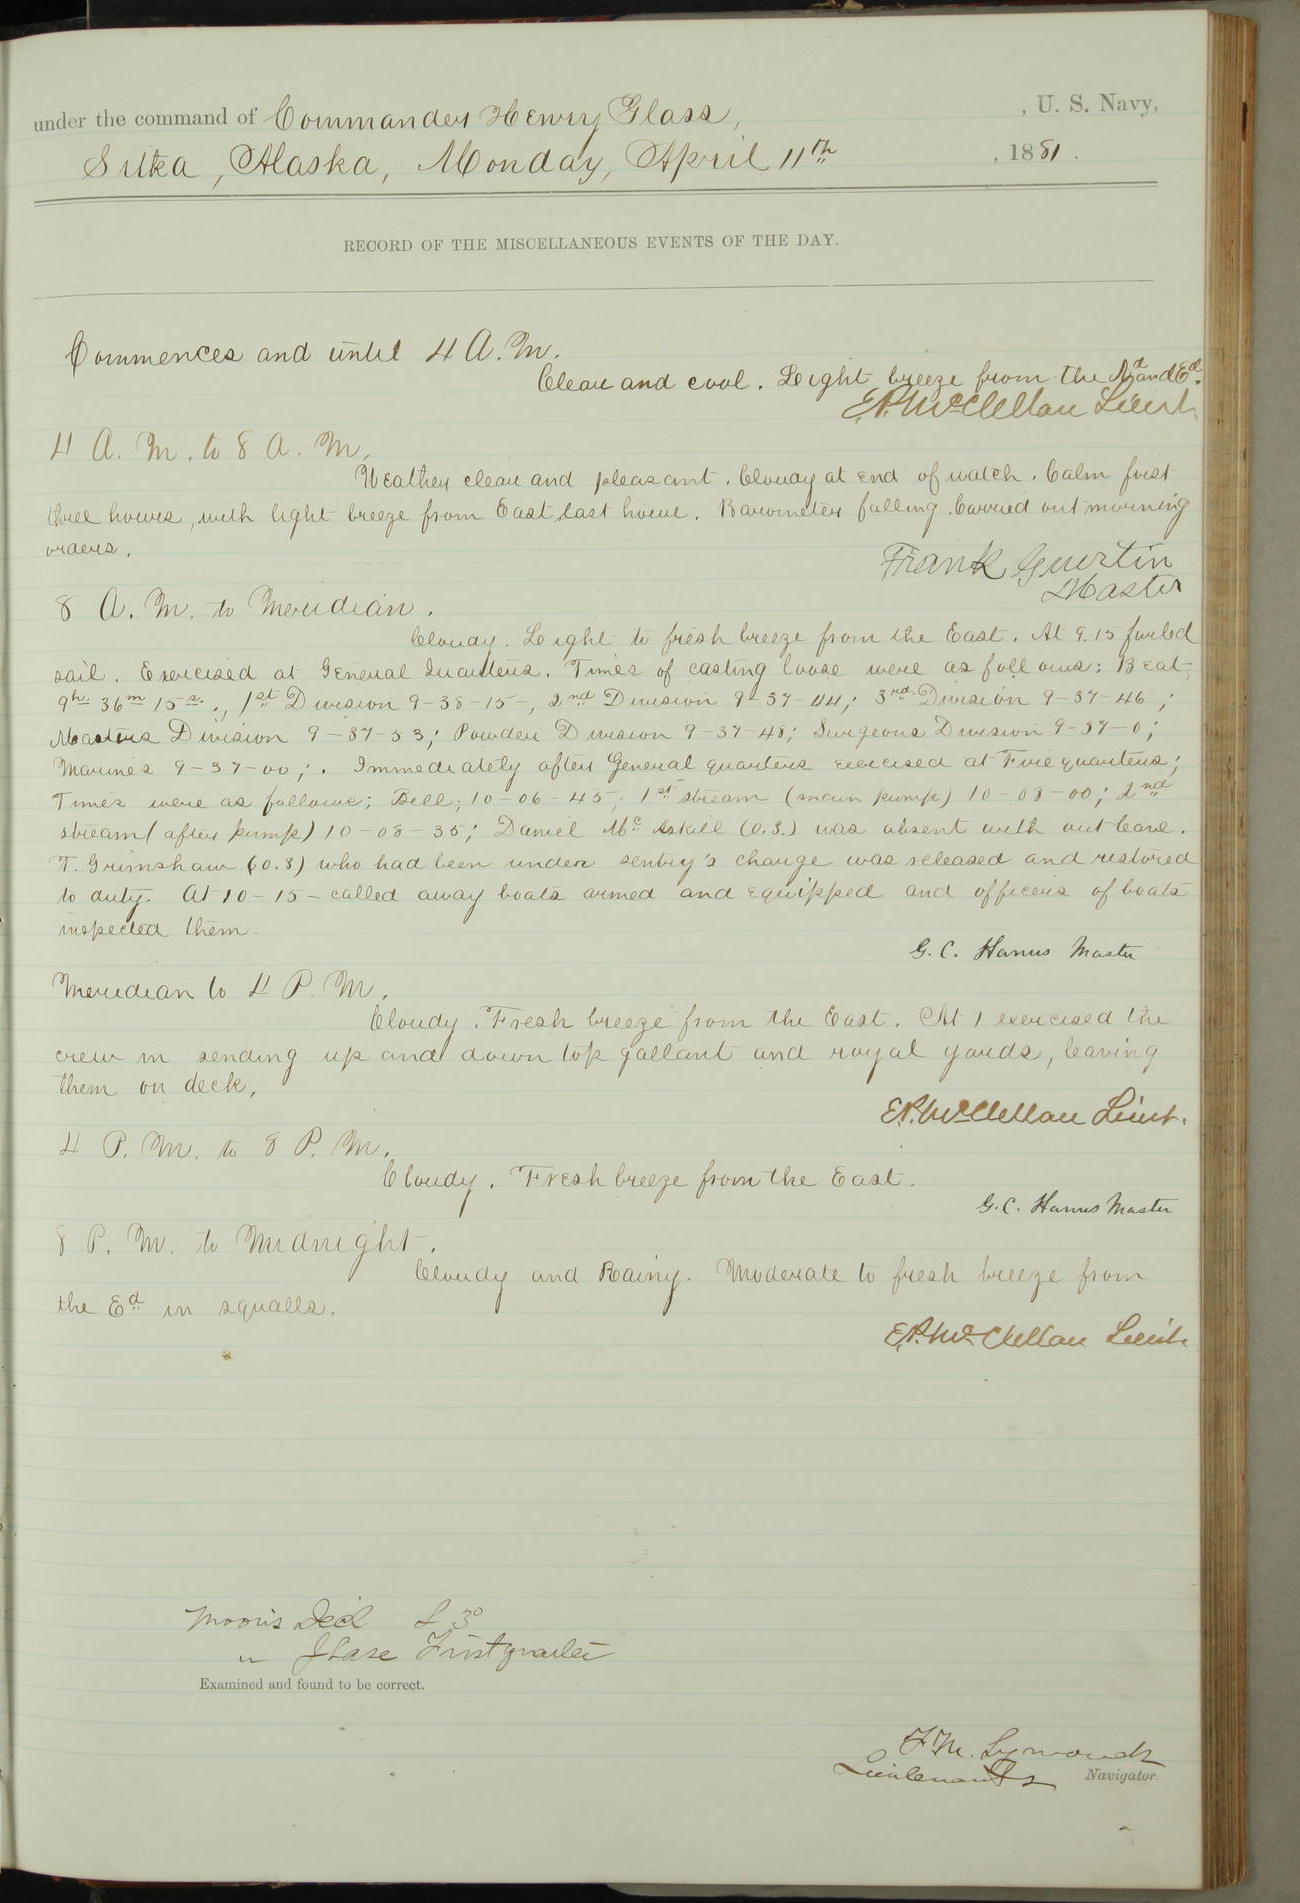 under the command of Commander Henry Glass, , U. S. Navy,
Sitka, Alaska, Monday, April 11th , 1881.
RECORD OF THE MISCELLANEOUS EVENTS OF THE DAY.
Commences and until 4 A.M.
Clear and cool. Light breeze from the Nd and Ed.
E.P. McClellan Lieut.
4 A.M. to 8 A.M.
Weather clear and pleasant. Cloudy at end of watch. Calm first
three hours, with light breeze from East last hour. Barometer falling. Carried out morning
orders.
Frank Guertin
Master
8 A.M. to Meridian.
Cloudy. Light to fresh breeze from the East. At 9.15 furled
sail. Exercised at General Quarters. Times of casting loose were as follows: Beat,
9h. 36m 15s., 1st Division 9-38-15-, 2nd Division 9-37-44; 3rd Division 9-37-46;
Masters Division 9-37-53; Powder Division 9-37-48; Surgeons Division 9-37-0;
Marines 9-37-00;. Immediately after General quarters exercised at Fire quarters;
Times were as follows; Bell; 10-06-45; 1st stream (main pump) 10-08-00; 2nd
stream (after pump) 10-08-35; Daniel Mc Askill (O.S.) was absent with out leave.
T. Grimshaw (O.S) who had been under sentry's charge was released and restored
to duty. At 10-15- called away boats armed and equipped and officers of boats
inspected them.
G. C. Hanus Master
Meridian to 4 P.M.
Cloudy. Fresh breeze from the East. At 1 exercised the
crew in sending up and down top gallant and royal yards, leaving
them on deck.
E.P. McClellan Lieut.
4 P.M. to 8 P.M.
Cloudy. Fresh breeze from the East.
G. C. Hanus Master
8 P.M. to Midnight.
Cloudy and Rainy. Moderate to fresh breeze from
the Ed in squalls.
E.P. McClellan Lieut
Moon's Decl
" Phase First quarter
Examined and found to be correct.
F. M. Symonds
Lieutenant Navigator.